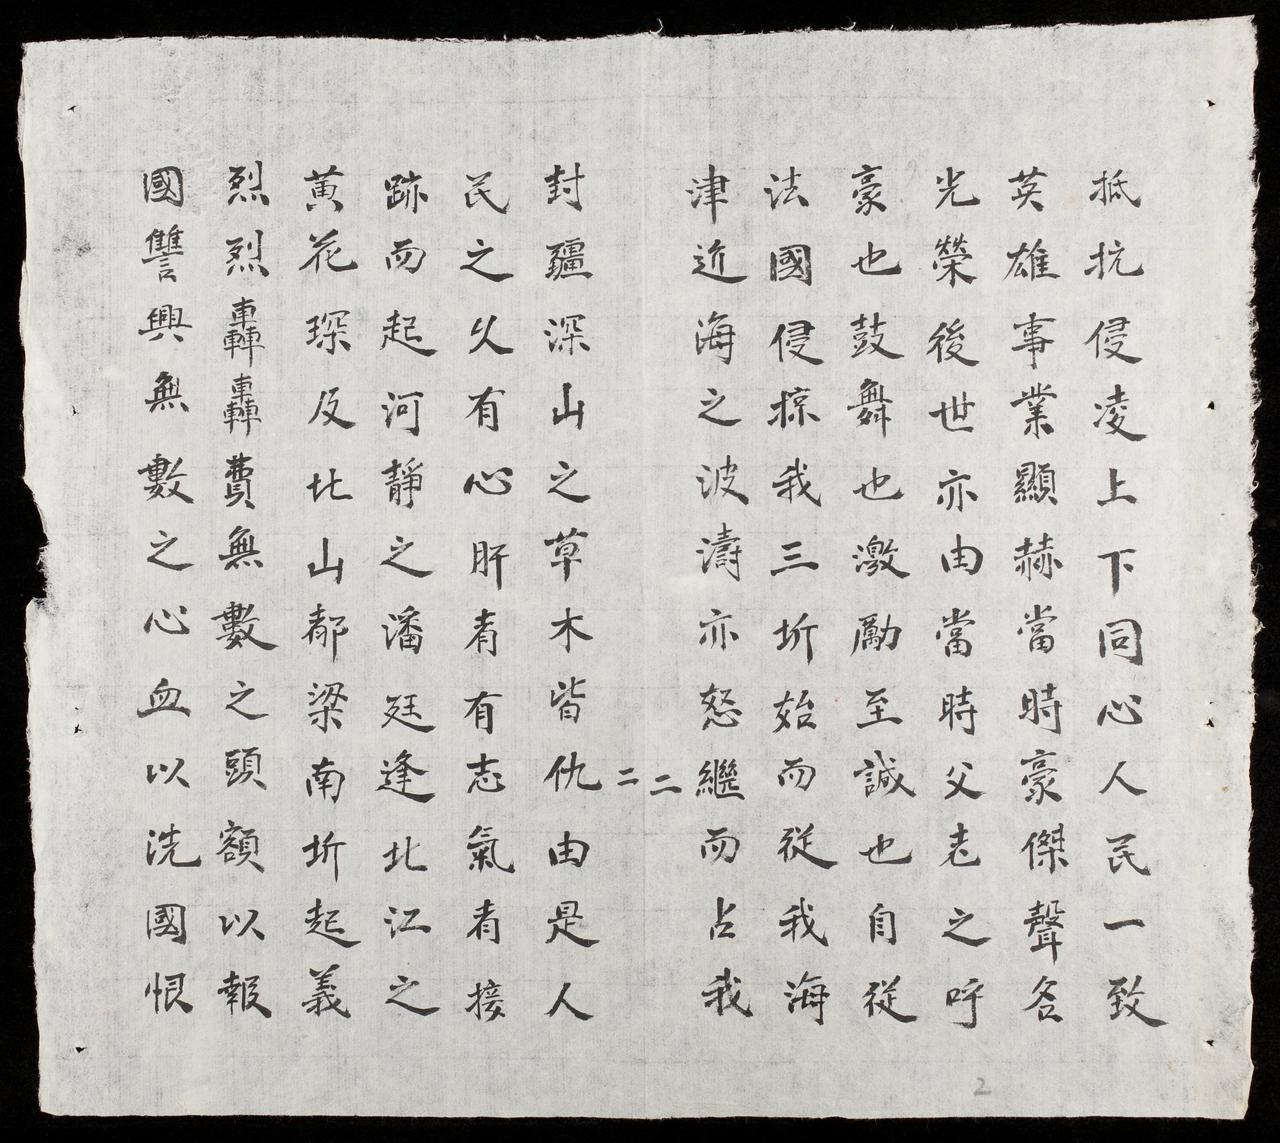 抵抗侵凌上下同心人民一致
英雄事業顯赫當時豪傑聲名
光榮後世亦由當時父老之呼
豪也鼓舞也激勵至誠也自從
法國侵掠我三圻始而從我海
津近海之波濤亦怒繼而占我
二
二
封疆深山之草木皆仇由是人
民之久有心肝者有志氣者接
跡而起河靜之潘廷逢北江之
黃花琛及北山都梁南圻起義
烈烈轟轟費無數之頭額以報
國讐興無數之心血以洗國恨
2